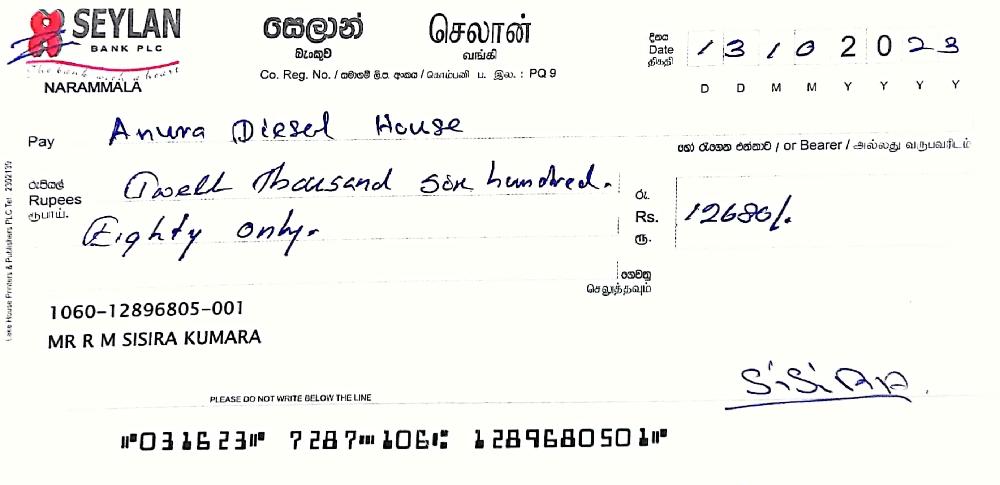 SEYLAN
BANK PLC
The bank with a heart
NARAMMALA
සෙලාන් செலான்
බැංකුව வங்கி
Co. Reg. No. / සමාගම් ලි.ප. අංකය / கொம்பனி ப. இல. : PQ 9
දිනය
Date
திகதி
1 3 1 0 2 0 2 3
D D M M Y Y Y Y
Pay Anura Diesel House
හෝ රැගෙන එන්නාට / or Bearer / அல்லது வருபவரிடம்
රුපියල්
Rupees
ரூபாய்.
Twell Thousand six hundred.
Eighty only.
රු.
Rs.
ரூ.
12680/.
ගෙවනු
செலுத்தவும்
1060-12896805-001
MR R M SISIRA KUMARA
Lake House Printers & Publishers PLC Tel
PLEASE DO NOT WRITE BELOW THE LINE
⑈031623⑈ 7287⑉106⑆ 1289680501⑈